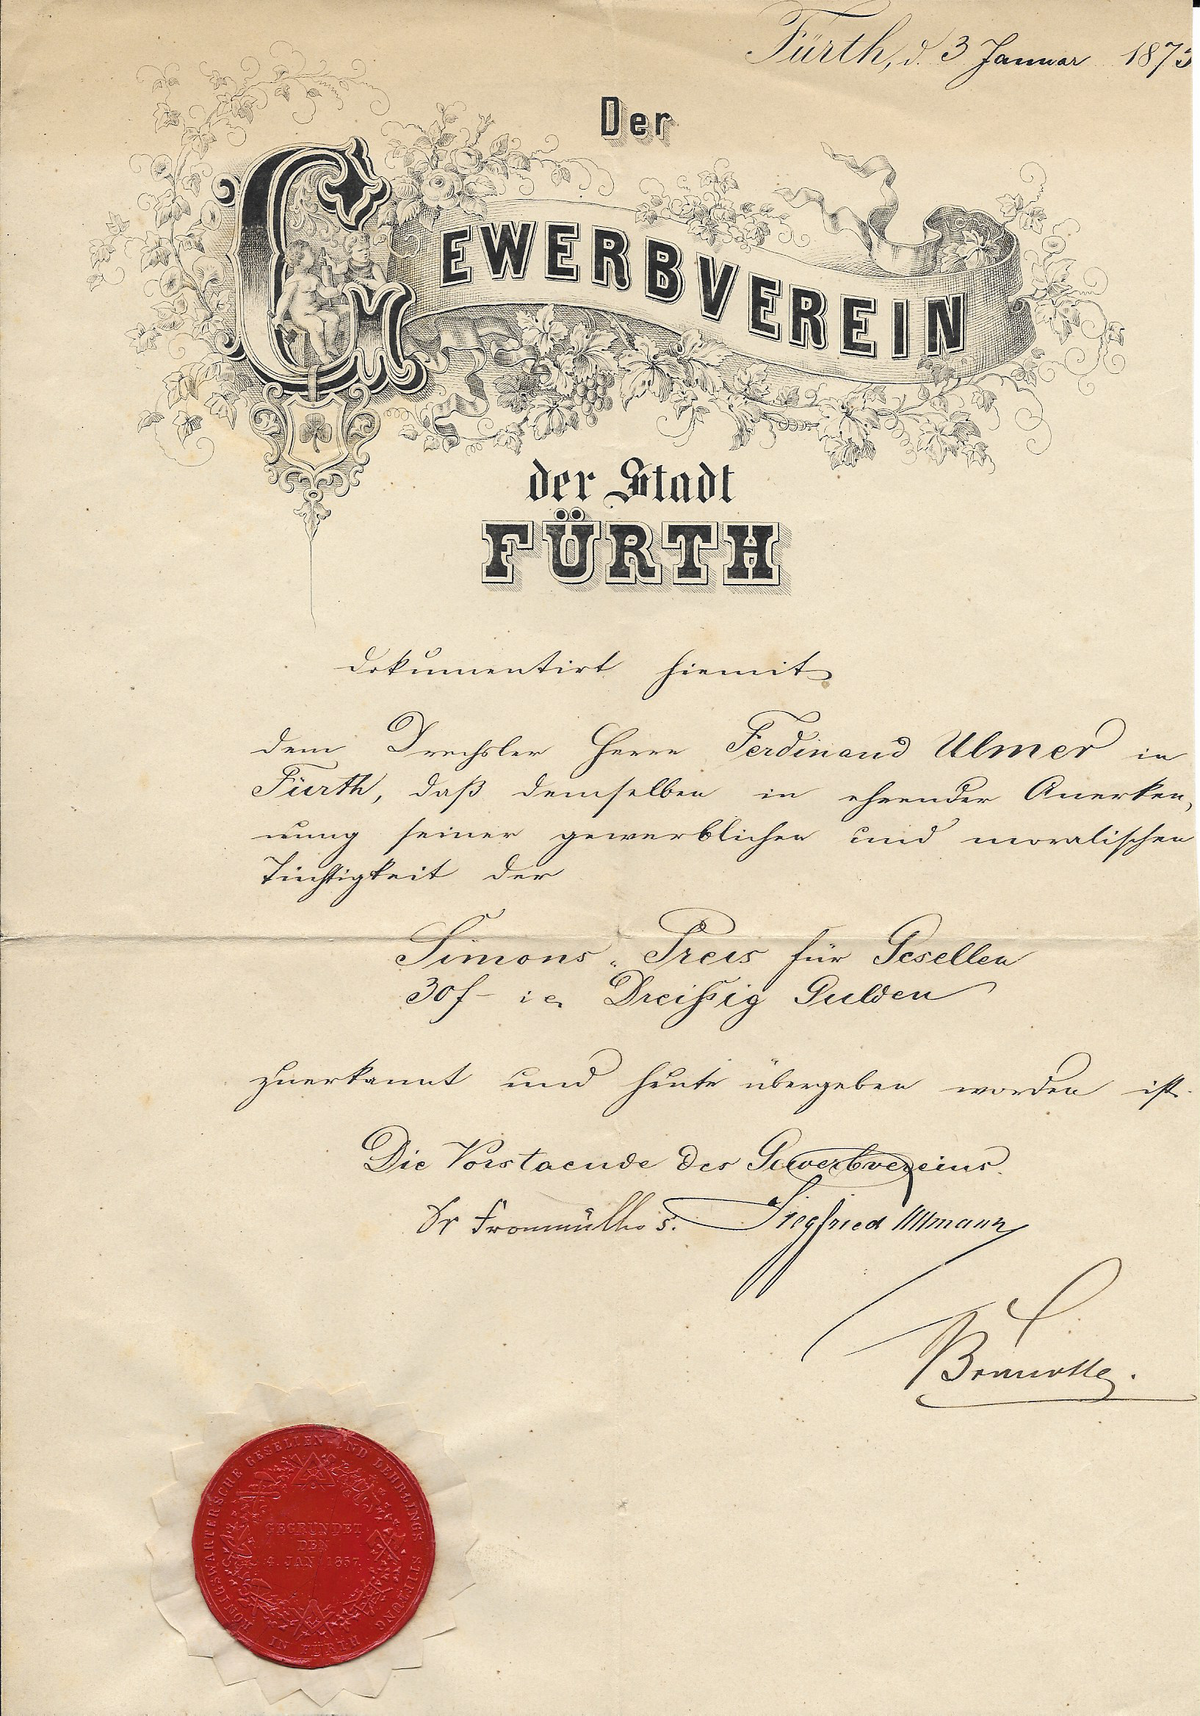 Fürth, d. 3 Januar 1873
Der
GEWERBVEREIN
der Stadt
FÜRTH
dokumentirt hiemit
dem Drechsler Herrn Ferdinand Ulmer in
Fürth, daß demselben in ehrender Anerken,
nung seiner gewerblichen und moralischen
Tüchtigkeit der
Simons-Preis für Gesellen
30 f – i.e. Dreißig Gulden
zuerkannt und heute übergeben worden ist.
Die Vorstaende des Gewerbvereins.
Dr Fronmüller s. Siegfried Ullmann
KÖNIGSWARTER'SCHE GESELLEN UND LEHRLINGS STIFTUNG
IN FÜRTH
GEGRÜNDET
DEN
4. JAN. 1857.